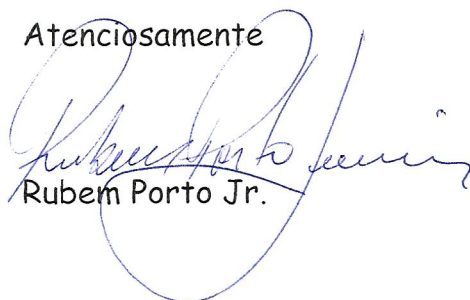 Atenciosamente
Rubem Porto Junior
Rubem Porto Jr.